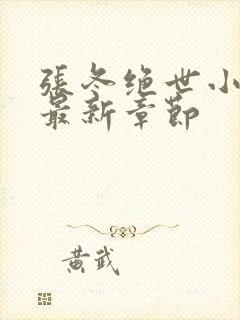 張冬绝世小
最新章节
黄武